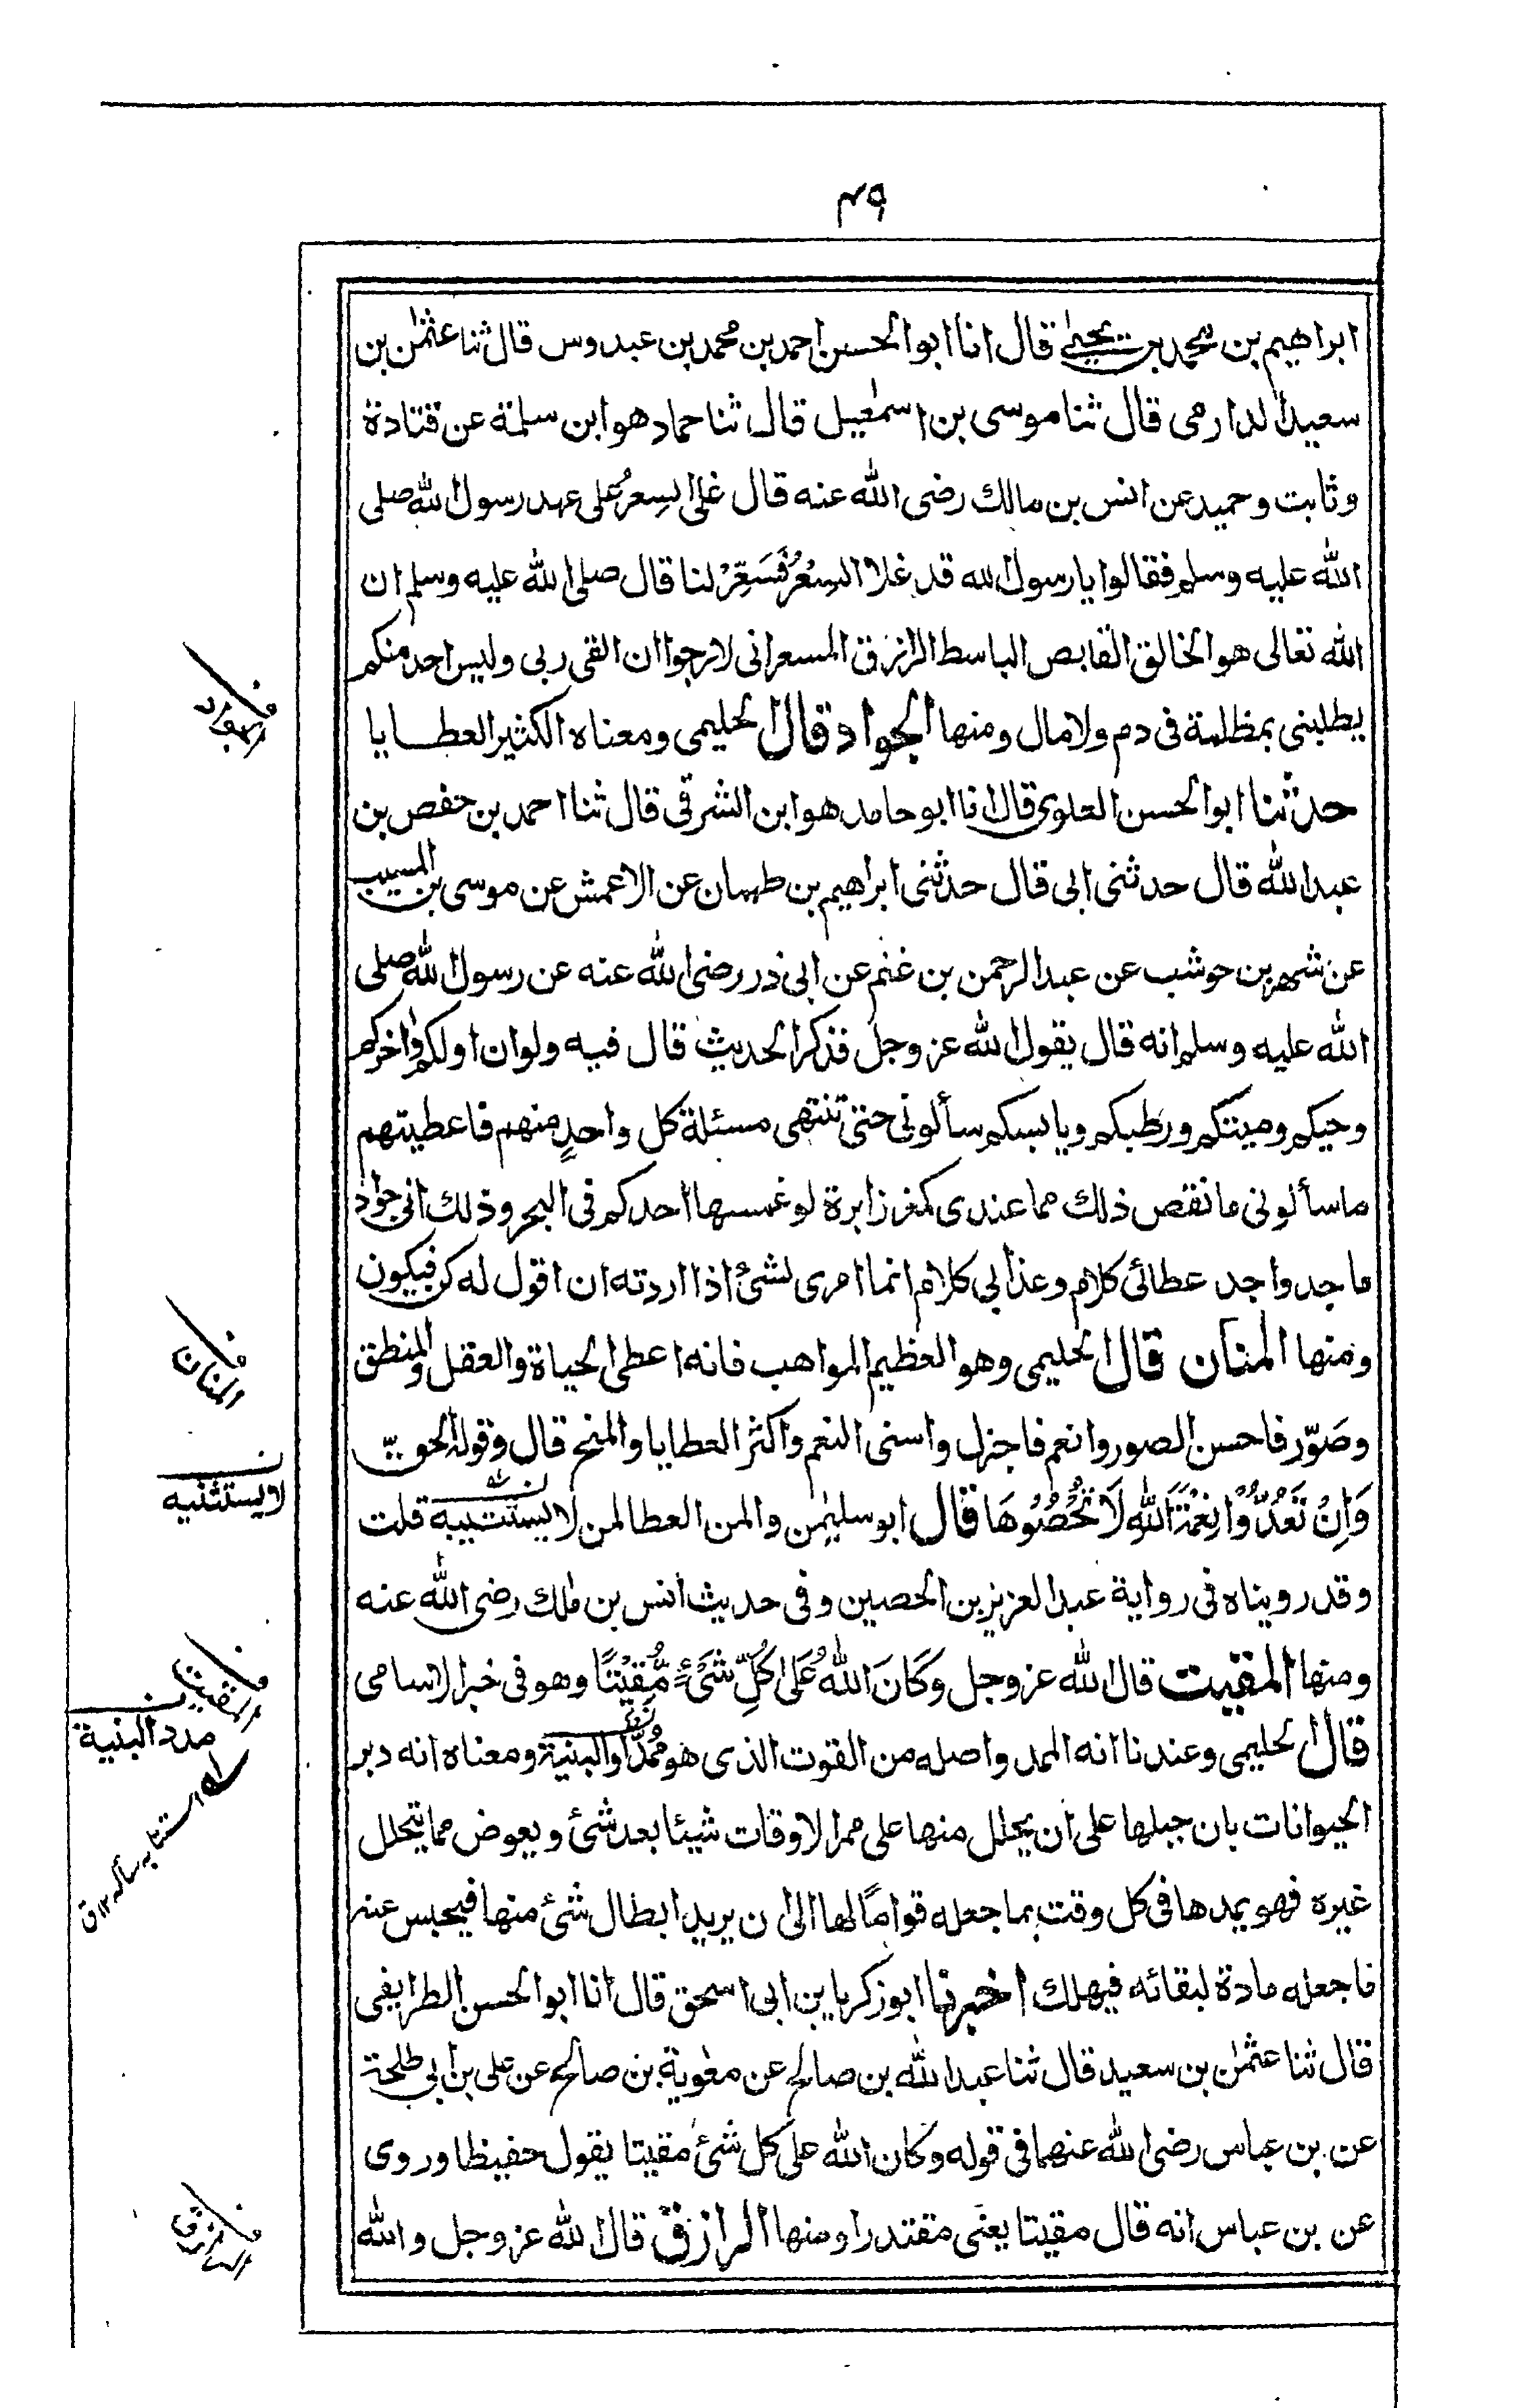 ٤٩
ابراهيم بن محمد بن يحيىٰ قال انا ابو الحسن احمد بن محمد بن عبدوس قال ثنا عثمٰن بن
سعيد الدارمى قال ثنا موسى بن اسمٰعيل قال ثنا حماد هو ابن سلمة عن قتادة
وثابت وحميد عن انس بن مالك رضى الله عنه قال غلى السِعرُ على عهد رسول الله صلى
الله عليه وسلم فقالوا يا رسول الله قد غلا السِعْرُ فَسَعِّرْ لنا قال صلى الله عليه وسلم ان
الله تعالى هو الخالق القابض الباسط الرازق المسعر انى لارجوا ان القى ربى وليس احد منكم
يطلبنى بمظلمة فى دم ولا مال ومنها الجواد قال الحليمى ومعناه الكثير العطايا
حدثنا ابو الحسن العلوى قال انا ابو حامد هو ابن الشرقى قال ثنا احمد بن حفص بن
عبد الله قال حدثنى ابى قال حدثنى ابراهيم بن طهمان عن الاعمش عن موسى بن المسيب
عن شهر بن حوشب عن عبد الرحمن بن غنم عن ابى ذر رضى الله عنه عن رسول الله صلى
الله عليه وسلم انه قال يقول الله عز وجل فذكر الحديث قال فيه ولو ان اولكم واٰخركم
وحيكم وميتكم ورطبكم ويابسكم سألونى حتى تنتهى مسئلة كل واحدٍ منهم فاعطيتهم
ما سألونى ما نقص ذلك مما عندى كمغرز ابرة لو غمسها احدكم فى البحر وذلك انى جواد
ماجد واجد عطائى كلام وعذابى كلام انما امرى لشئ اذا اردته ان اقول له كن فيكون
ومنها المنان قال الحليمى وهو العظيم المواهب فانه اعطى الحياة والعقل والمنطق
وصَوّر فاحسن الصور وانعم فاجزل واسنى النعم واكثر العطايا والمنح قال وقوله الحق
وَاِنْ تَعُدُّوْا نِعْمَةَ اللّٰهِ لَا تُحْصُوْهَا قال ابو سليمٰن والمن العطا لمن لا يستثيبه قلت
وقد رويناه فى رواية عبد العزيز بن الحصين وفى حديث انس بن مٰلك رضى الله عنه
ومنها المقيت قال الله عز وجل وَكَانَ اللّٰهُ عَلٰى كُلِّ شَىْءٍ مُّقِيْتًا وهو فى خبر الاسامى
قال الحليمى وعندنا انه الممد واصله من القوت الذى هو مُمَدٌّ او البنية ومعناه انه دبر
الحيوانات بان جبلها على ان يحلل منها على ممر الاوقات شيئا بعد شئ ويعوض مما يتحلل
غيره فهو يمدها فى كل وقت بما جعله قوامًا لها الى ان يريد ابطال شئ منها فيحبس عنه
فاجعله مادة لبقائه فيهلك اخبرنا ابو زكريا بن ابى اسحق قال انا ابو الحسن الطرايفى
قال ثنا عثمٰن بن سعيد قال ثنا عبد الله بن صالح عن معٰوية بن صالح عن على بن ابى طلحة
عن بن عباس رضى الله عنهما فى قوله وكان الله على كل شئ مقيتا يقول حفيظا وروى
عن بن عباس انه قال مقيتا يعنى مقتدرا ومنها الرازق قال الله عز وجل والله
الجواد
المنان
لا يستثنيه
المقيت
مدد البنية
استثابه سأله ١٢ ق
الرازق